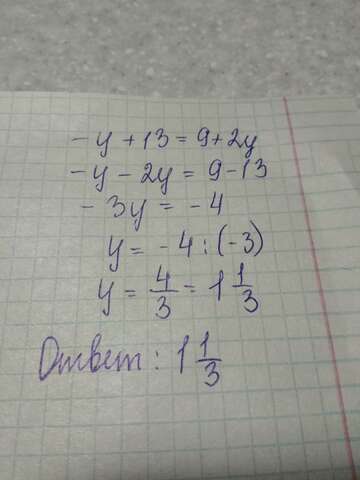 -y + 13 = 9 + 2y
-y - 2y = 9 - 13
- 3y = - 4
y = - 4 : (-3)
y = 4/3 = 1 1/3
Ответ: 1 1/3